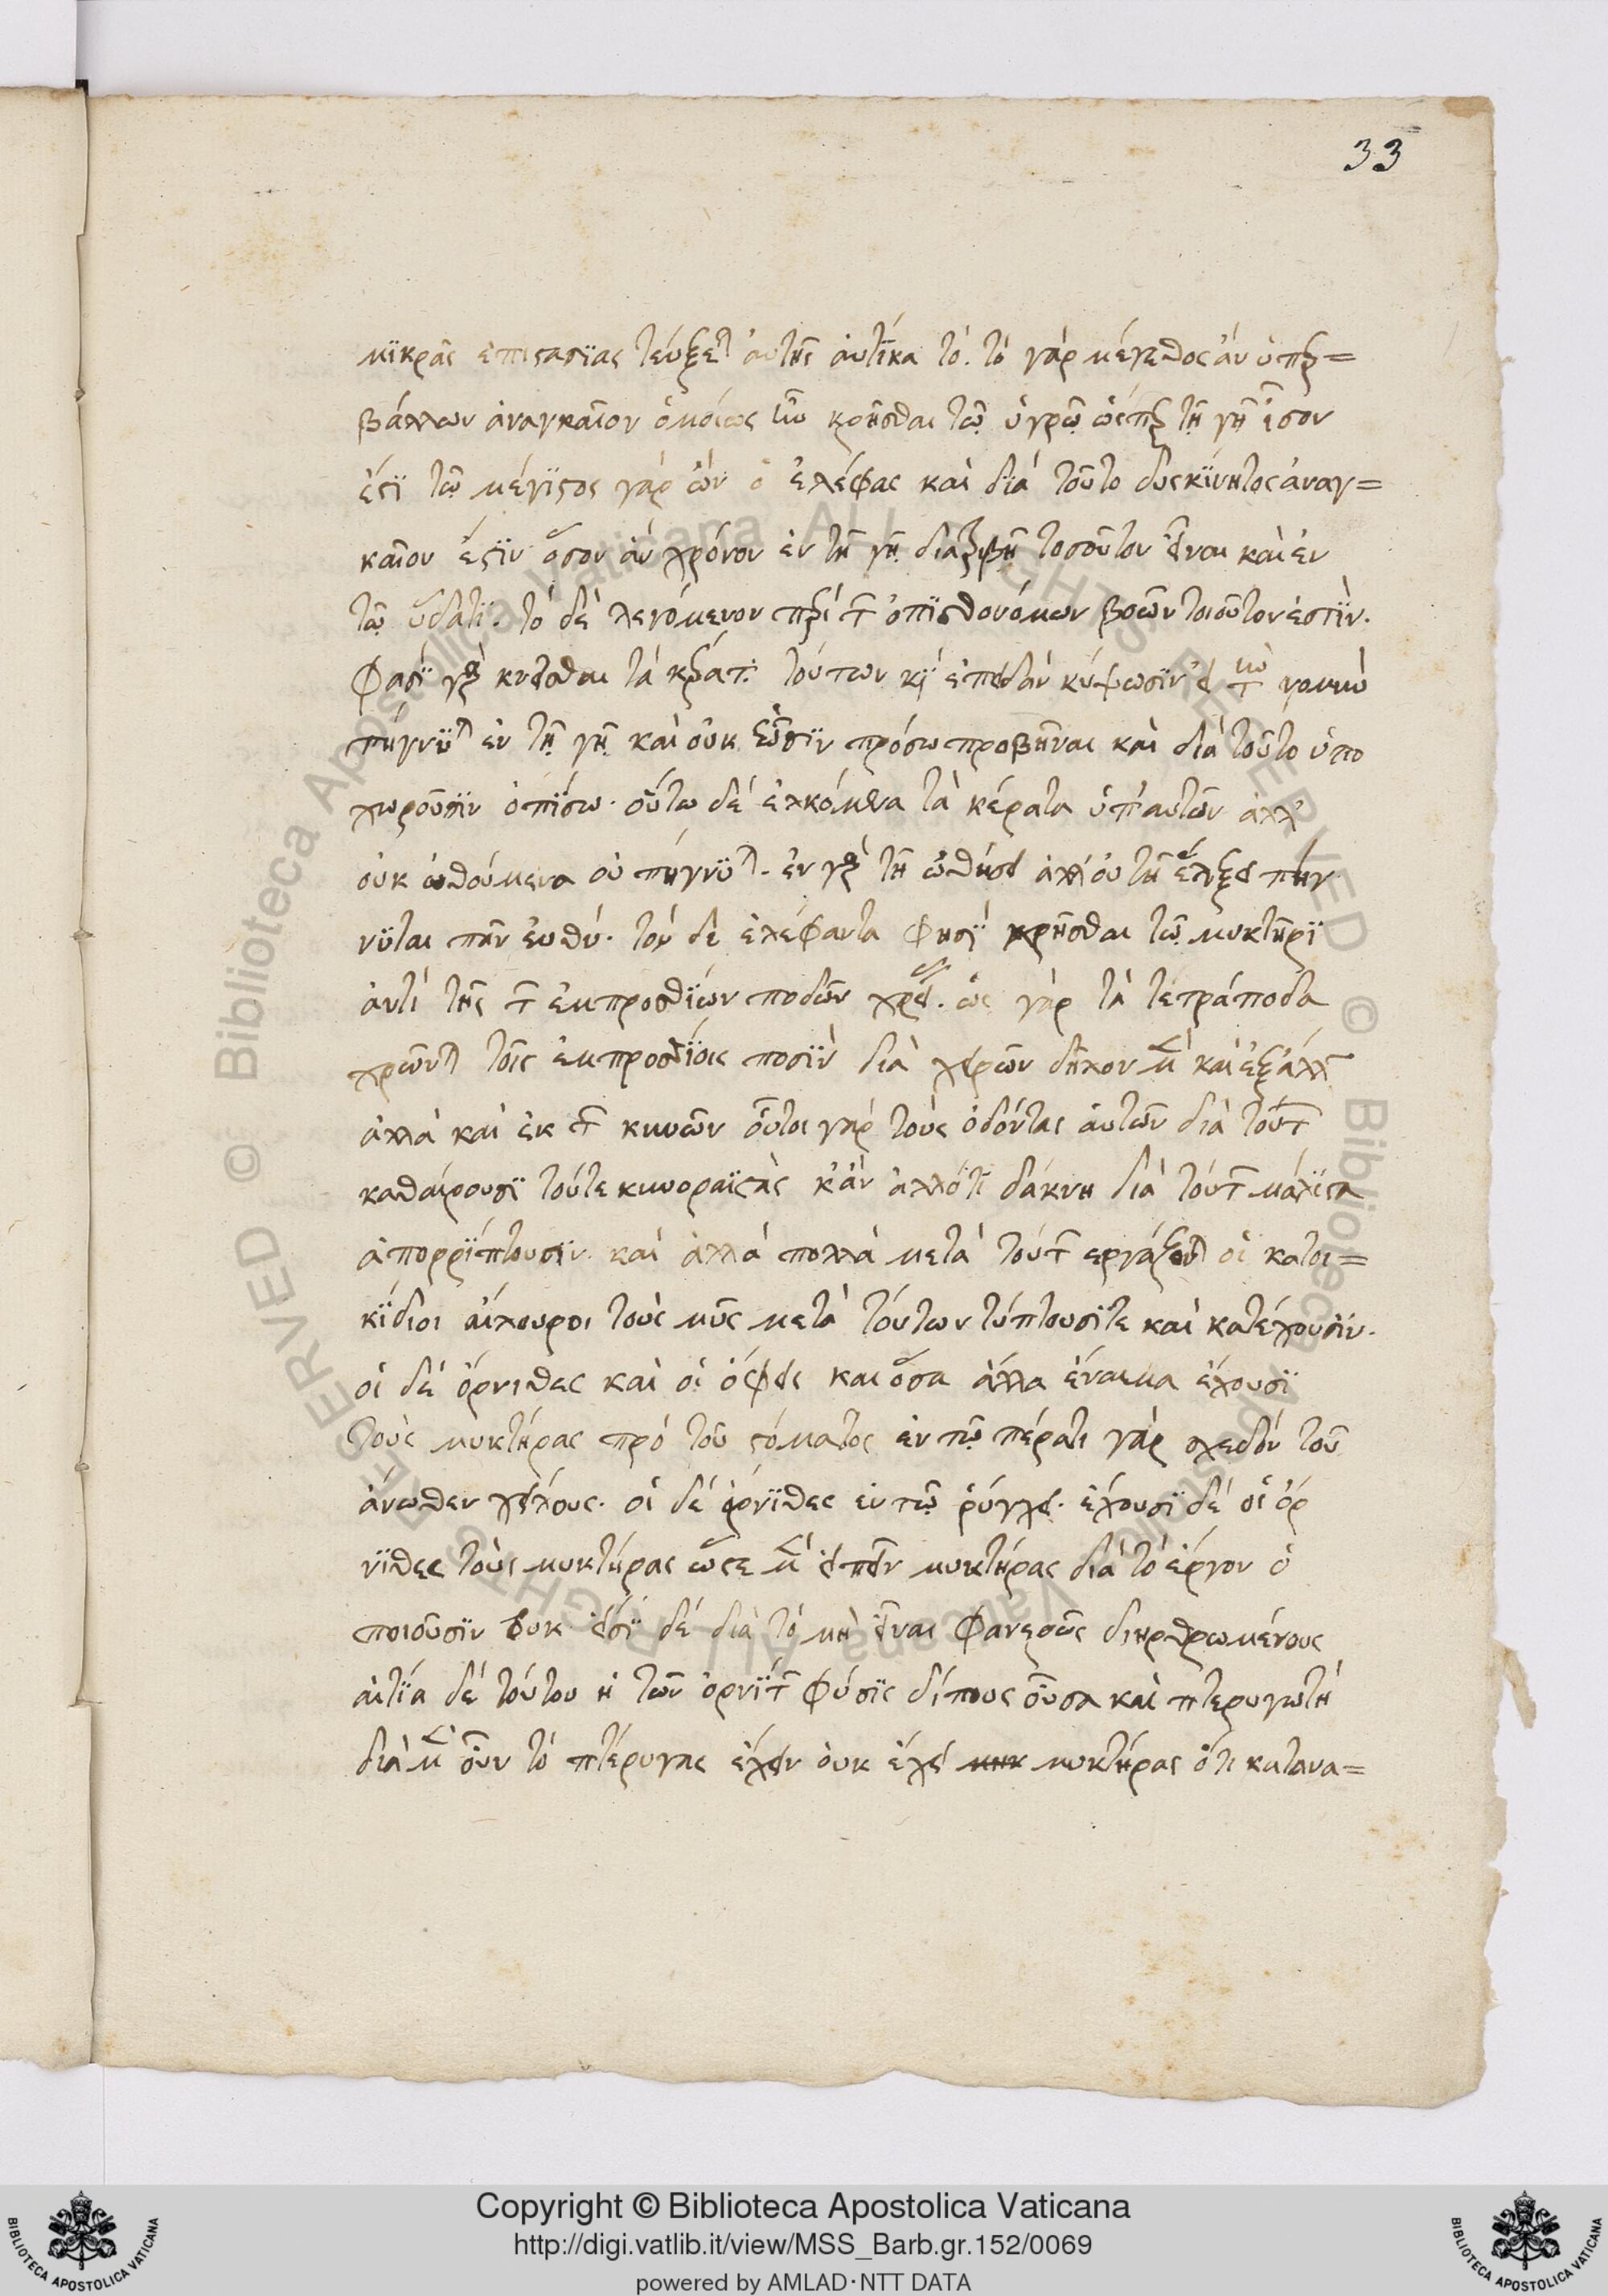 33
μϊκρᾶς ἐπιστασϊας τεύξεται ἀυτῆς ἀυτΐκα τό. τὸ γὰρ μέγεθος ἂν ὑπερ=
βάλλων ἀναγκαῖον ὁμοίως κρῆσθαι τῶ ὑγρῶ ὡσπερ τῆ γῆ ἴσον
ἐστὶ τῶ μέγϊστος γὰρ ὢν ὁ ἐλέφας καὶ δϊὰ τοῦτο δυσκϊνητος ἀναγ=
καῖον ἐστϊν ὅσον ἂν χρόνον ἐν τῆ γῆ διατριβῆ τοσοῦτον εἶναι καὶ ἐν
τῶ ὕδατϊ. τὸ δὲ λεγόμενον περὶ τῶν ὀπϊσθονόμων βοῶν τοιοῦτον ἐστὶν.
φασΐ γὰρ κινεῖσθαι τὰ κέρατα τούτων κἢ ἐπειδὰν κύψωσϊν
πήγνϋται ἐν τῆ γῆ καὶ οὐκ ἐῶσϊν πρόσω προβῆναι καὶ διὰ τοῦτο ὑπο
χωροῦσϊν ὀπίσω. οὕτω δὲ ἑλκόμενα τὰ κέρατα ὑπ' αυτῶν ἀλλ'
οὐκ ὠθούμενα οὐ πήγνϋται. ἐν γὰρ τῆ ὠθήσει ἀλλ' οὐ τῆ ἕλξει πήγ
νϋται πᾶν ἐυθύ. τὸν δὲ ἐλέφαντα φησΐ χρῆσθαι τῶ μυκτῆρϊ
ἀντὶ τῆς τῶν ἐμπροσθΐων ποδῶν χρείας. ὡς γὰρ τὰ τετράποδα
χρῶνται τοῖς ἐμπροσθΐοις ποσὶν διὰ χειρῶν δῆλον μὲν καὶ ἐξ ἄλλων
ἀλλὰ καὶ ἐκ τῶν κυνῶν οὗτοι γὰρ τοὺς ὀδόντας ἀυτῶν διὰ τούτων
καθαίρουσϊ τούτε κυνοραϊστὰς κἂν ἀλλότι δάκνη διὰ τούτων μάλϊστα
ἀπορρΐπτουσϊν. καὶ ἀλλὰ πολλὰ μετὰ τούτων εργάζονται οἱ κατοι=
κίδιοι αἴλουροι τοὺς μῦς μετὰ τούτων τύπτουσϊτε καὶ κατέχουσϊν.
οἱ δὲ ὄρνιθες καὶ οἱ ὄφεις και ὅσα ἄλλα ἔναιμα ἔχουσϊ
τοὺς μυκτῆρας πρὸ τοῦ στόματος ἐν τῶ πέρατι γὰρ σχεδὸν τοῦ
ἄνωθεν χείλους. οἱ δὲ ὄρνϊθες ἐν τῶ ῥύγχει. ἔχουσϊ δὲ οἱ ὄρ
νϊθες τοὺς μυκτῆρας ὥστε μὲν εἰπεῖν μυκτῆρας διὰ τὸ ἔργον ὃ
ποιοῦσϊν ὀυκ ἐισϊ δὲ διὰ τὸ μὴ εἶναι φανεροὺς διηρθρωμένους
ἀιτΐα δὲ τούτου ἡ τῶν ὀρνΐθων φύσϊς δίπους οὖσα καὶ πτερυγωτὴ
διὰ μὲν οὖν τὸ πτέρυγας ἔχειν ὀυκ ἔχει μηκ μυκτῆρας ὅτι κατανα=
Copyright © Biblioteca Apostolica Vaticana
http://digi.vatlib.it/view/MSS_Barb.gr.152/0069
powered by AMLAD·NTT DATA